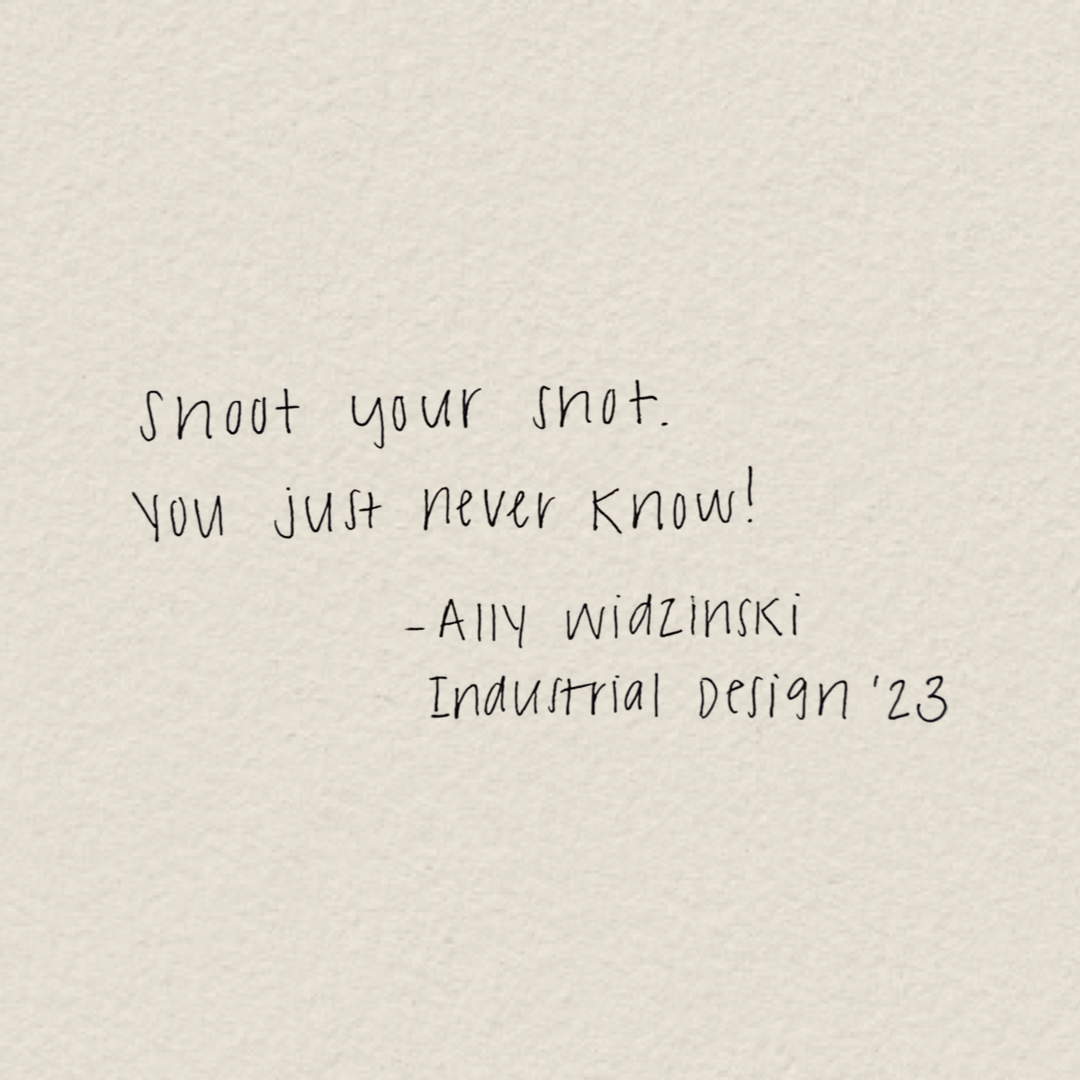 shoot your shot.
You just never know!
- Ally Widzinski
Industrial Design '23